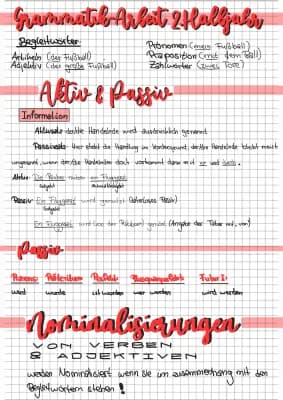 Grammatik-Arbeit 2 Halbjahr
Begleitwörter:
Artikeln (der Fußball)
Adjektiv (der große Fußball)
Pronomen (mein Fußball)
Präposition (mit dem Ball)
Zahlwörter (zwei Tore)
Aktiv & Passiv
Information
Aktivsatz: der/die Handelnde wird ausdrücklich genannt.
Passivsatz: Hier steht die Handlung im Vordergrund, der/die Handelnde bleibt meist
ungenannt, wenn der/die Handelnde doch vorkommt dann mit von und durch.
Aktiv: Die Räuber rauben ein Flugzeug
Subjekt
Passiv: Ein Flugzeug wird geraubt
Subjekt
Ein Flugzeug wird (von den Räubern) geraubt (Angabe der Täter mit „von“)
Passiv
Präsens: Präteritum: Perfekt: Plusquamperfekt: Futur I:
wird wurde ist worden war worden wird werden
Nominalisierungen
VON VERBEN
& ADJEKTIVEN
werden Nominalisiert wenn sie im zusammenhang mit den
Begleitwörtern stehen!